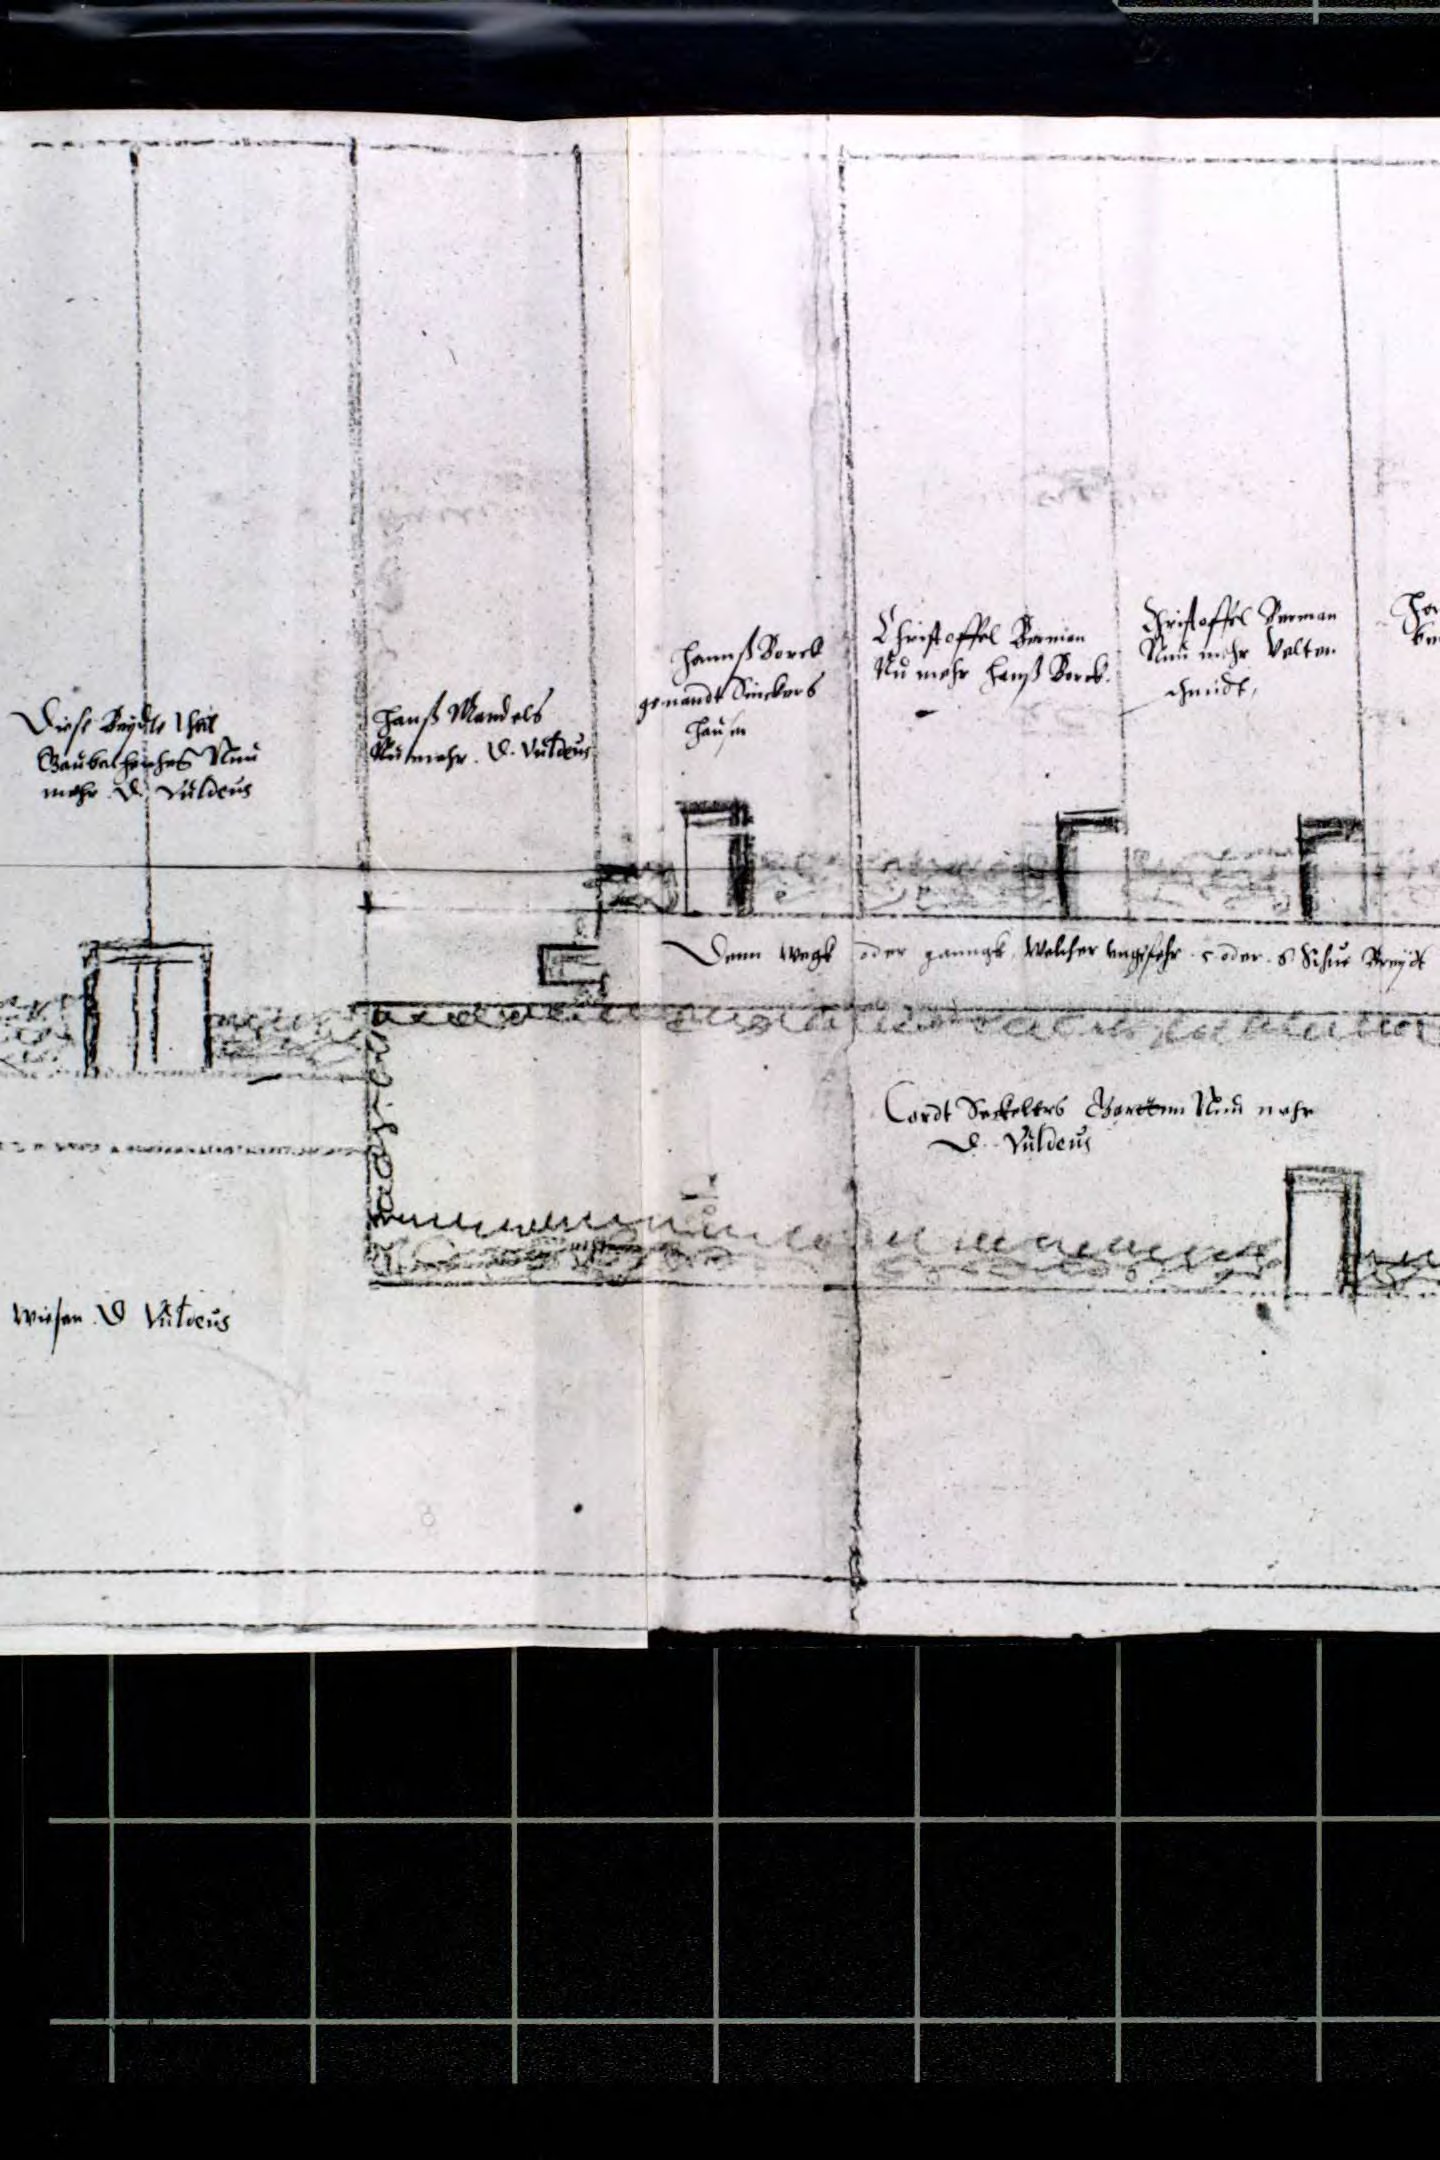 Diese Beydte theil
Nuu
mehr D. Vulteus
Hanß Mandels
Nu mehr D. Vulteus
Hannß Borck
genandt Sinckers
hausen
Christoffel Berman
Nu mehr Hanß Borck.
Christoffel Berman
Nuu mehr Velten
Schmidt,
Denn Wegk oder ganngk, Welcher ungefehr 5 oder 6 Schue Breydt
Cordt Seckelers Gartten Nuu mehr
D. Vulteus
Wiesen D Vulteus